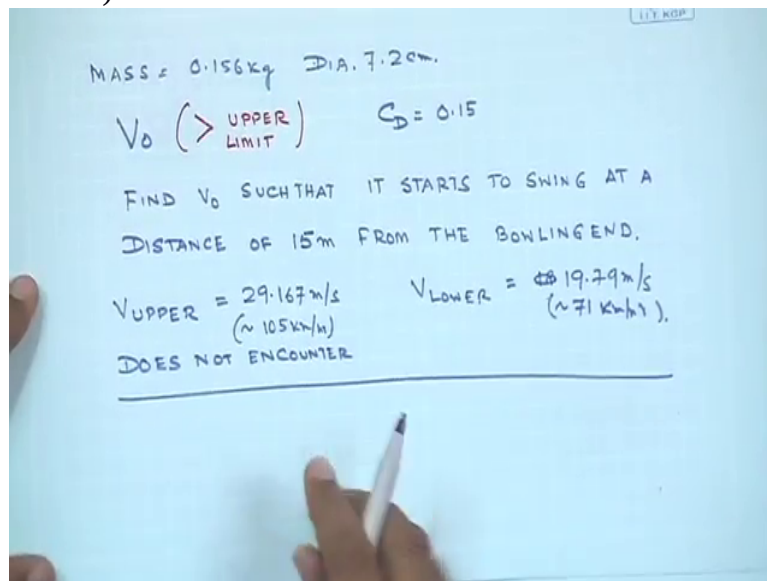 IIT KGP
MASS = 0.156kg DIA. 7.2cm.
V₀ (> UPPER LIMIT) C_D = 0.15
FIND V₀ SUCH THAT IT STARTS TO SWING AT A
DISTANCE OF 15m FROM THE BOWLING END.
V_UPPER = 29.167m/s V_LOWER = 19.79m/s
(~ 105km/h) (~71 km/hr).
DOES NOT ENCOUNTER